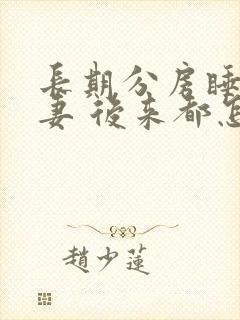 長期分房睡
妻 後来都怎
趙少蓮